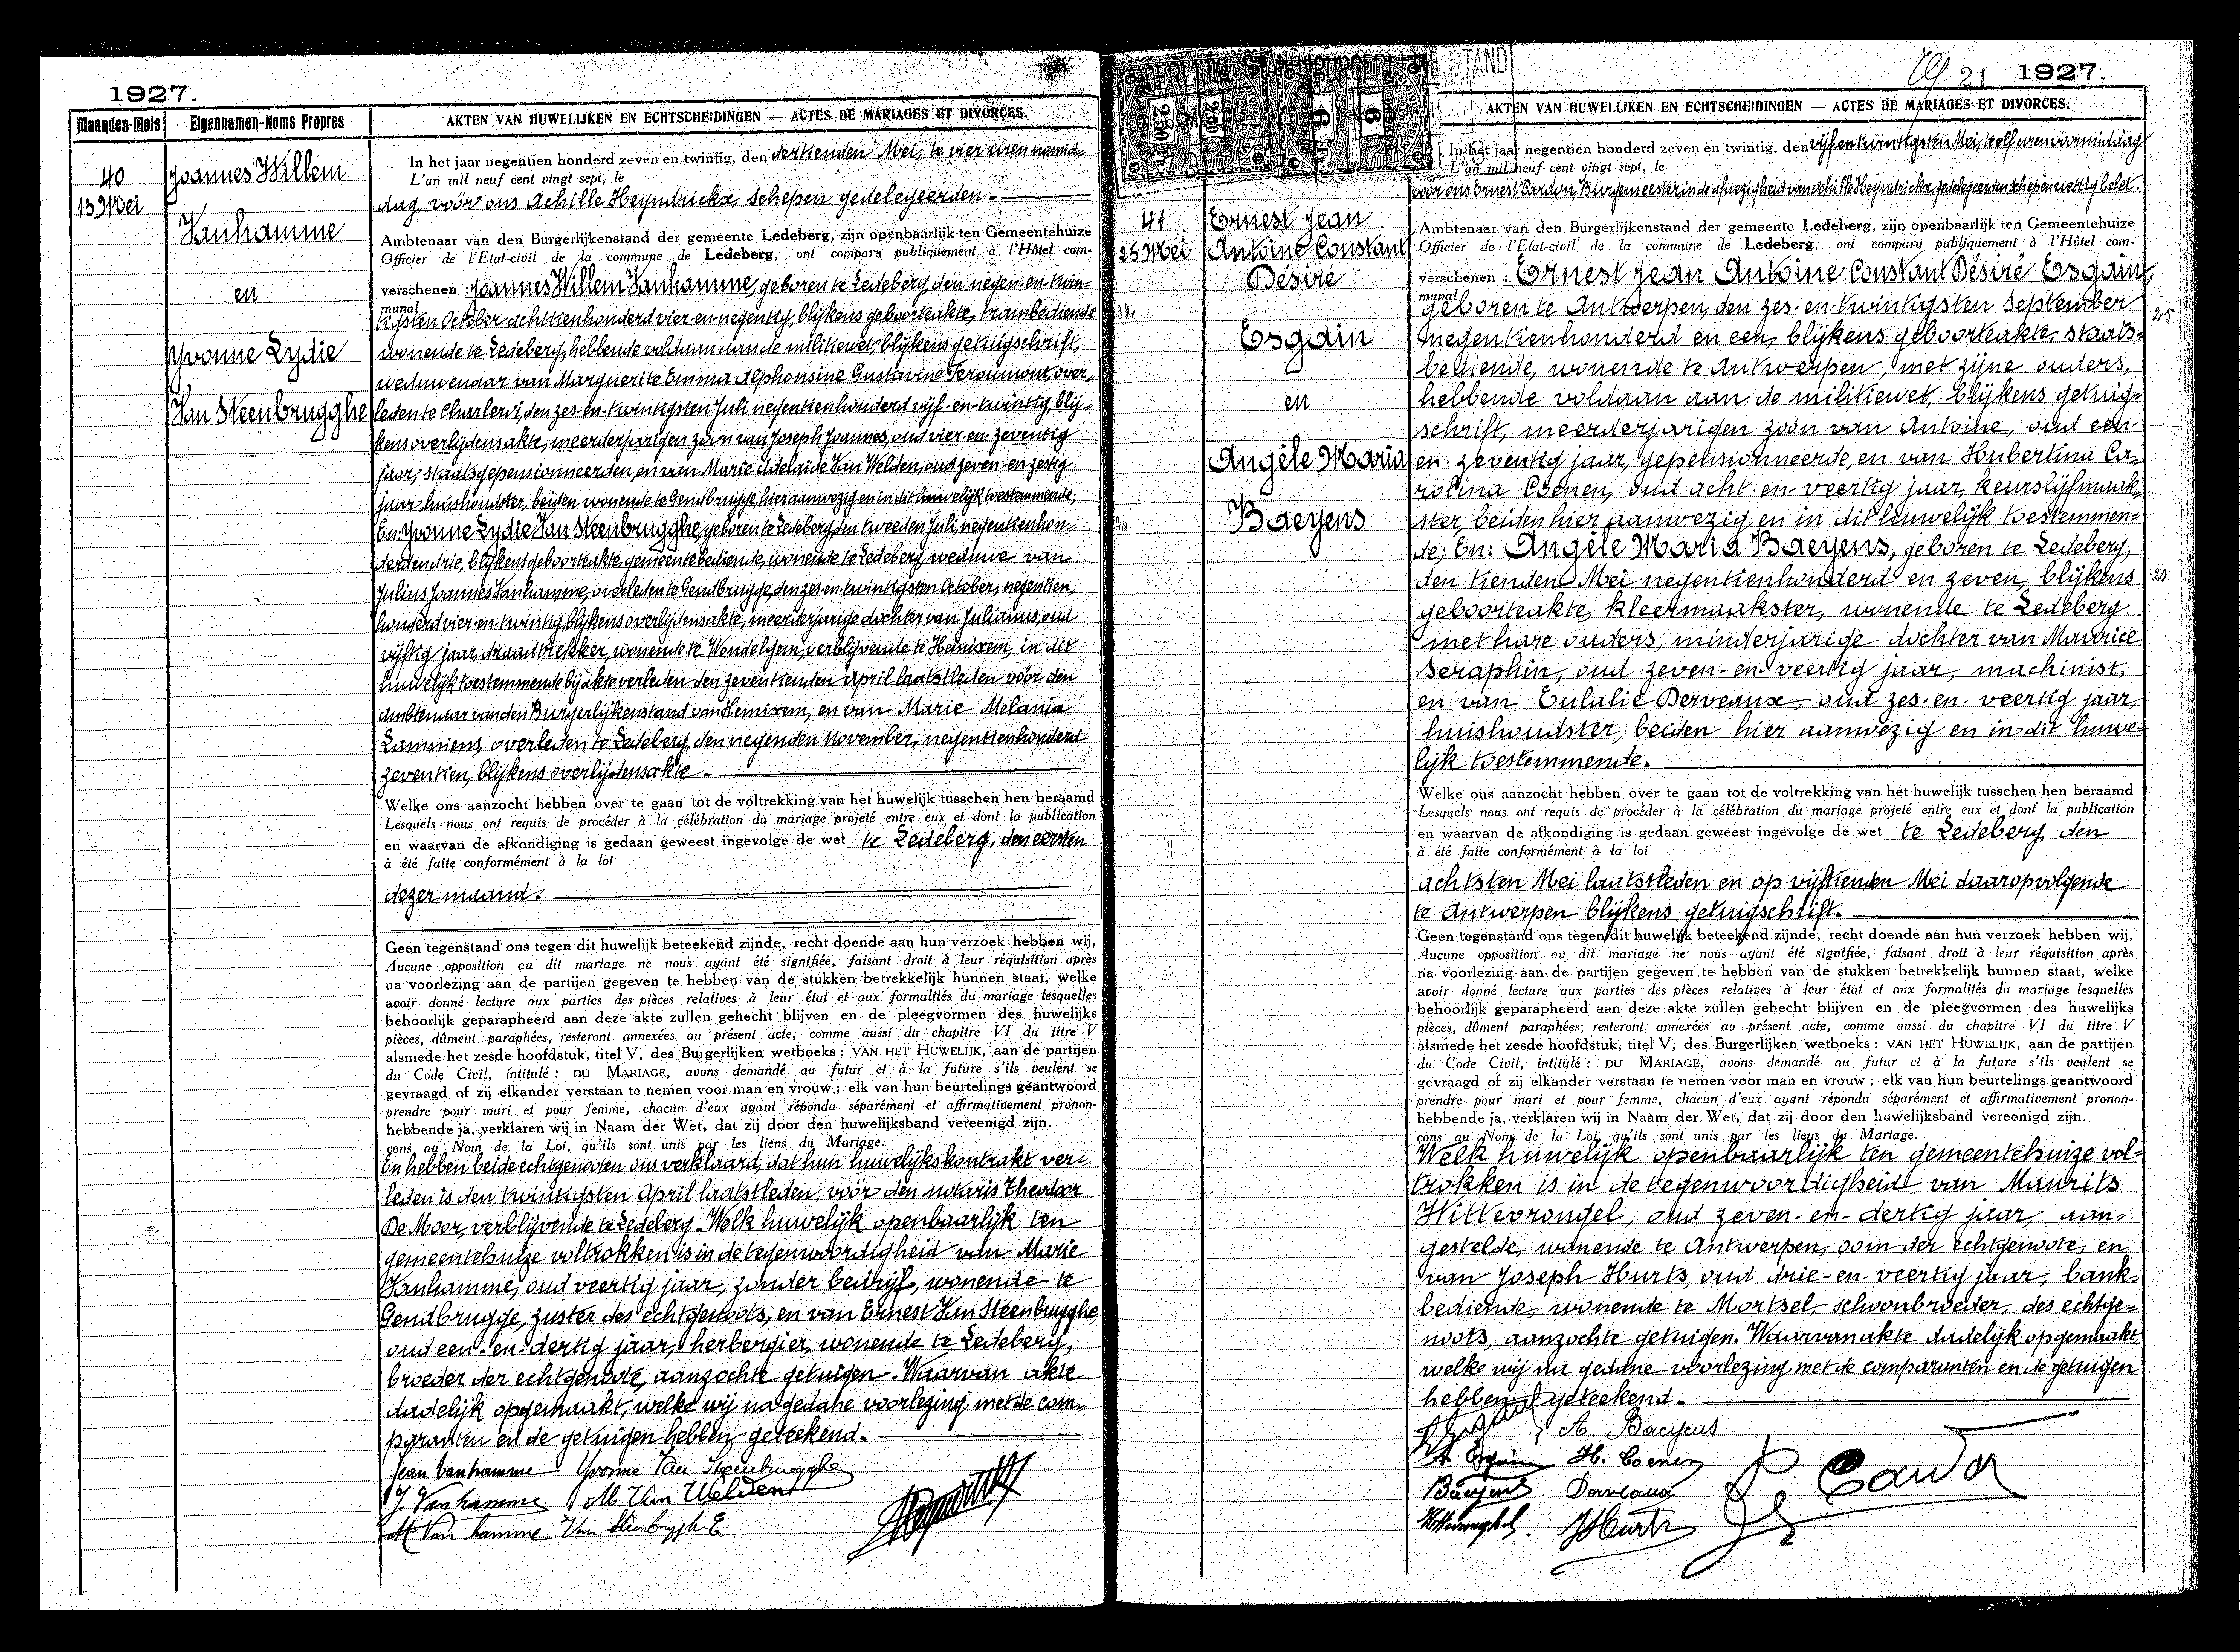 1927.
Maanden-Mois
Eigennamen-Noms Propres
AKTEN VAN HUWELIJKEN EN ECHTSCHEIDINGEN — ACTES DE MARIAGES ET DIVORCES.
40
13 Mei
Joannes Willem
Vanhamme
en
Yvonne Lydie
Van Steenbrugghe
In het jaar negentien honderd zeven en twintig, den dertienden Mei, te vier uren namid-
L'an mil neuf cent vingt sept, le
dag, vóór ons Achille Heyndrickx, schepen gedelegeerden -
Ambtenaar van den Burgerlijkenstand der gemeente Ledeberg, zijn openbaarlijk ten Gemeentehuize
Officier de l'Etat-civil de la commune de Ledeberg, ont comparu publiquement à l'Hôtel com-
verschenen : Joannes Willem Vanhamme, geboren te Ledeberg, den negen-en-twin-
munal
tigsten October achttienhonderd vier-en-negentig, blijkens geboorteakte, trambediende
wonende te Ledeberg, hebbende voldaan aan de militiewet, blijkens getuigschrift,
weduwenaar van Marguerite Emma Alphonsine Gustavine Feroumont, over-
leden te Charleroi, den zes-en-twintigsten Juli negentienhonderd vijf-en-twintig, blij-
kens overlijdensakte, meerderjarigen zoon van Joseph Joannes, oud vier-en-zeventig
jaar, staatsgepensionneerden, en van Marie Adelaïde Van Welden, oud zeven-en-zestig
jaar, huishoudster, beiden wonende te Gendbrugge, hier aanwezig en in dit huwelijk toestemmende;
En: Yvonne Lydie Van Steenbrugghe, geboren te Ledeberg, den tweeden Juli, negentienhon-
derd en drie, blijkens geboorteakte, gemeentebediende, wonende te Ledeberg, weduwe van
Julius Joannes Vanhamme, overleden te Gendbrugge, den zes en twintigsten October, negentien,
honderd vier-en-twintig, blijkens overlijdensakte, meerderjarige dochter van Julianus, oud
vijftig jaar, draadtrekker, wonende te Wondelgem, verblijvende te Hemixem, in dit
huwelijk toestemmende bij akte verleden den zeventienden April laatstleden vóór den
Ambtenaar van den Burgerlijkenstand van Hemixem, en van Marie Melania
Lammens, overleden te Ledeberg, den negenden November, negentienhonderd
zeventien, blijkens overlijdensakte.
Welke ons aanzocht hebben over te gaan tot de voltrekking van het huwelijk tusschen hen beraamd
Lesquels nous ont requis de procéder à la célébration du mariage projeté entre eux et dont la publication
en waarvan de afkondiging is gedaan geweest ingevolge de wet te Ledeberg, den eersten
à été faite conformément à la loi
dezer maand.
Geen tegenstand ons tegen dit huwelijk beteekend zijnde, recht doende aan hun verzoek hebben wij,
Aucune opposition au dit mariage ne nous ayant été signifiée, faisant droit à leur réquisition après
na voorlezing aan de partijen gegeven te hebben van de stukken betrekkelijk hunnen staat, welke
avoir donné lecture aux parties des pièces relatives à leur état et aux formalités du mariage lesquelles
behoorlijk geparapheerd aan deze akte zullen gehecht blijven en de pleegvormen des huwelijks
pièces, dûment paraphées, resteront annexées au présent acte, comme aussi du chapitre VI du titre V
alsmede het zesde hoofdstuk, titel V, des Burgerlijken wetboeks : VAN HET HUWELIJK, aan de partijen
du Code Civil, intitulé : DU MARIAGE, avons demandé au futur et à la future s'ils veulent se
gevraagd of zij elkander verstaan te nemen voor man en vrouw ; elk van hun beurtelings geantwoord
prendre pour mari et pour femme, chacun d'eux ayant répondu séparément et affirmativement pronon-
hebbende ja, verklaren wij in Naam der Wet, dat zij door den huwelijksband vereenigd zijn.
çons au Nom de la Loi, qu'ils sont unis par les liens du Mariage.
En hebben beide echtgenoten ons verklaard, dat hun huwelijkskontrakt ver-
leden is den twintigsten April laatstleden, vóór den notaris Theodoor
De Moor, verblijvende te Ledeberg. Welk huwelijk openbaarlijk ten
gemeentehuize voltrokken is in de tegenwoordigheid van Marie
Vanhamme, oud veertig jaar, zonder bedrijf, wonende te
Gendbrugge, zuster des echtgenoots, en van Ernest Van Steenbrugghe,
oud een-en-dertig jaar, herbergier, wonende te Ledeberg,
broeder der echtgenoote, aanzochte getuigen. Waarvan akte
dadelijk opgemaakt, welke wij na gedane voorlezing met de com-
paranten en de getuigen hebben geteekend.
Jean Vanhamme Yvonne Van Steenbrugghe
J. Vanhamme M Van Welden
M Van hamme Van Steenbrugghe E
21 1927.
AKTEN VAN HUWELIJKEN EN ECHTSCHEIDINGEN — ACTES DE MARIAGES ET DIVORCES.
41
25 Mei
Ernest Jean
Antoine Constant
Désiré
Esgain
en
Angèle Maria
Baeyens
In het jaar negentien honderd zeven en twintig, den vijf en twintigsten Mei, te elf uren voormiddag
L'an mil neuf cent vingt sept, le
voor ons Ernest Cardon, Burgemeester, in de afwezigheid van Achille Heyndrickx, gedelegeerden schepen wettig belet.
Ambtenaar van den Burgerlijkenstand der gemeente Ledeberg, zijn openbaarlijk ten Gemeentehuize
Officier de l'Etat-civil de la commune de Ledeberg, ont comparu publiquement à l'Hôtel com-
verschenen : Ernest Jean Antoine Constant Désiré Esgain,
munal
geboren te Antwerpen, den zes-en-twintigsten September
negentienhonderd en een, blijkens geboorteakte, staats-
25
bediende, wonende te Antwerpen, met zijne ouders,
hebbende voldaan aan de militiewet, blijkens getuig-
schrift, meerderjarigen zoon van Antoine, oud een-
en-zeventig jaar, gepensionneerde, en van Hubertina Ca-
rolina Coenen, oud acht-en-veertig jaar, keurslijfmaak-
ster, beiden hier aanwezig en in dit huwelijk toestemmen-
de; En: Angèle Maria Baeyens, geboren te Ledeberg,
den tienden Mei negentienhonderd en zeven, blijkens
20
geboorteakte, kleermaakster, wonende te Ledeberg
met hare ouders, minderjarige dochter van Maurice
Seraphin, oud zeven-en-veertig jaar, machinist,
en van Eulalie Derveaux, oud zes-en-veertig jaar,
huishoudster, beiden hier aanwezig en in dit huwe-
lijk toestemmende.
Welke ons aanzocht hebben over te gaan tot de voltrekking van het huwelijk tusschen hen beraamd
Lesquels nous ont requis de procéder à la célébration du mariage projeté entre eux et dont la publication
en waarvan de afkondiging is gedaan geweest ingevolge de wet te Ledeberg, den
à été faite conformément à la loi
achtsten Mei laatstleden en op vijftienden Mei daaropvolgende
te Antwerpen blijkens getuigschrift.
Geen tegenstand ons tegen dit huwelijk beteekend zijnde, recht doende aan hun verzoek hebben wij,
Aucune opposition au dit mariage ne nous ayant été signifiée, faisant droit à leur réquisition après
na voorlezing aan de partijen gegeven te hebben van de stukken betrekkelijk hunnen staat, welke
avoir donné lecture aux parties des pièces relatives à leur état et aux formalités du mariage lesquelles
behoorlijk geparapheerd aan deze akte zullen gehecht blijven en de pleegvormen des huwelijks
pièces, dûment paraphées, resteront annexées au présent acte, comme aussi du chapitre VI du titre V
alsmede het zesde hoofdstuk, titel V, des Burgerlijken wetboeks : VAN HET HUWELIJK, aan de partijen
du Code Civil, intitulé : DU MARIAGE, avons demandé au futur et à la future s'ils veulent se
gevraagd of zij elkander verstaan te nemen voor man en vrouw ; elk van hun beurtelings geantwoord
prendre pour mari et pour femme, chacun d'eux ayant répondu séparément et affirmativement pronon-
hebbende ja, verklaren wij in Naam der Wet, dat zij door den huwelijksband vereenigd zijn.
çons au Nom de la Loi, qu'ils sont unis par les liens du Mariage.
Welk huwelijk openbaarlijk ten gemeentehuize vol-
trokken is in de tegenwoordigheid van Maurits
Hittevrongel, oud zeven-en-dertig jaar, aan-
gestelde, wonende te Antwerpen, oom der echtgenoote, en
van Joseph Hurts, oud drie-en-veertig jaar, bank-
bediende, wonende te Mortsel, schoonbroeder des echtge-
noots, aanzochte getuigen. Waarvan akte dadelijk opgemaakt
welke wij na gedane voorlezing met de comparanten en de getuigen
hebben geteekend.
A. Baeyens
A Esgain H. Coenen
Baeyens Derveaux
Hittevronghel. JHurts